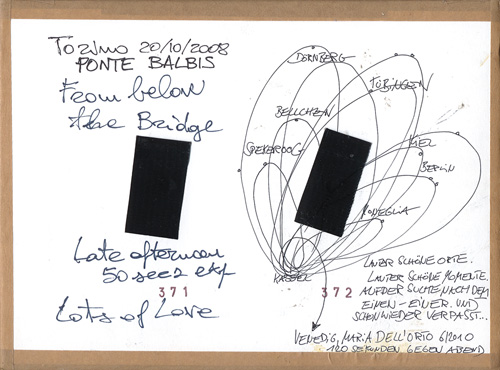 Torino 20/10/2008
PONTE BALBIS
From below
the Bridge
Late afternoon
50 secz exp
371
Lots of Love
DÖRNBERG
TÜBINGEN
BELLCHEN
SPIEKEROOG
KIEL
BERLIN
MONEGLIA
KASSEL
372
LAUTER SCHÖNE ORTE.
LAUTER SCHÖNE MOMENTE.
AUF DER SUCHE NACH DEM
EINEN – EINER. UND
SCHON WIEDER VERPASST...
VENEDIG, MARIA DELL'ORTO 6/2010
120 SEKUNDEN GEGEN ABEND